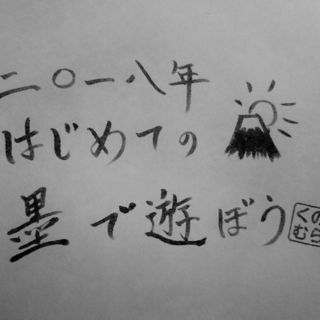 二〇一八年
はじめての
墨で遊ぼう
くのむら